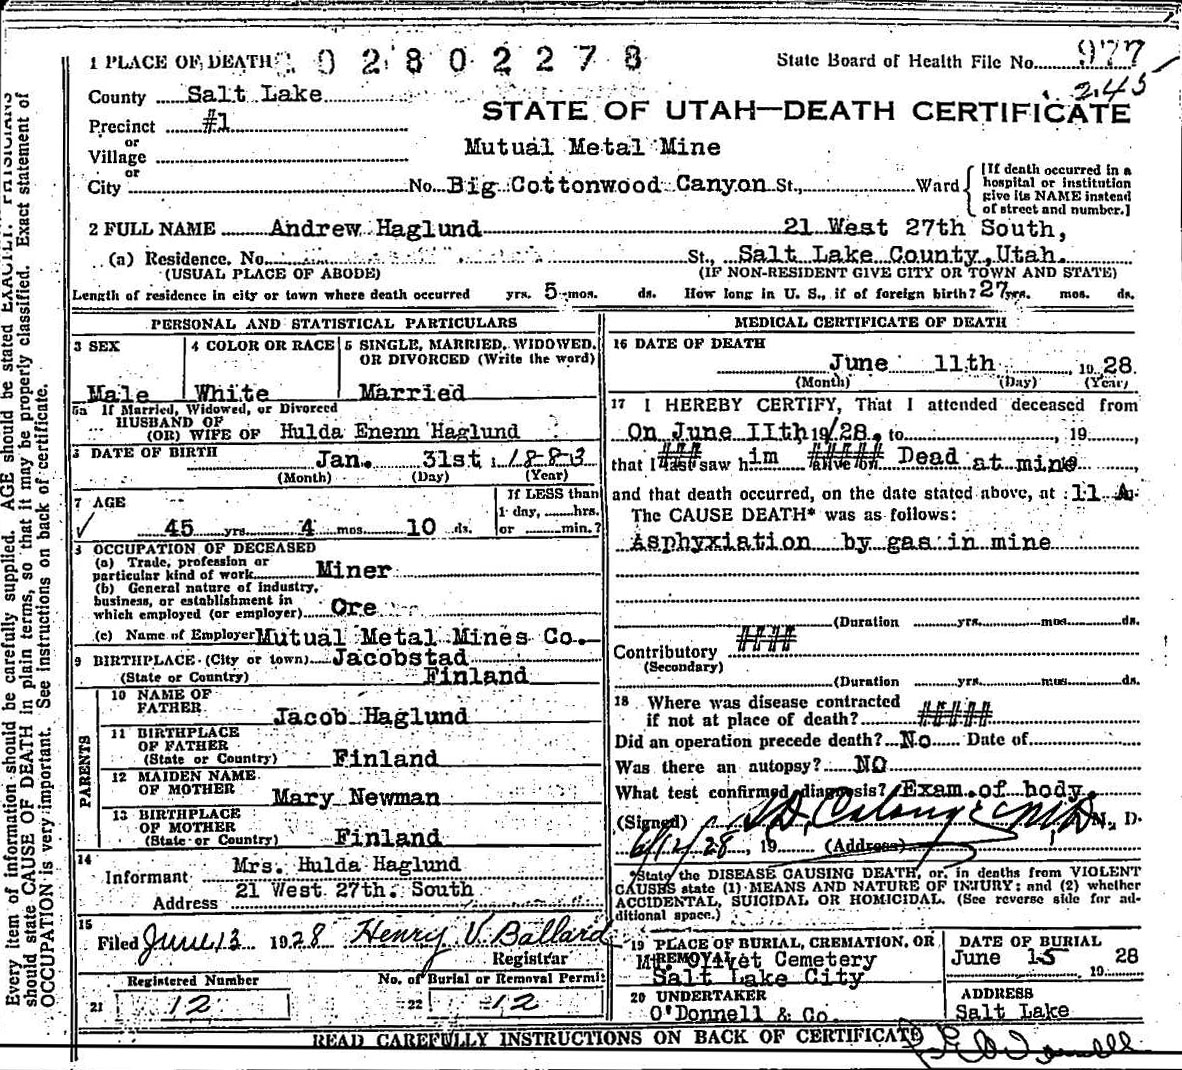 1 PLACE OF DEATH 0 2 8 0 2 2 7 8 State Board of Health File No. 977
245
County Salt Lake
STATE OF UTAH—DEATH CERTIFICATE
Precinct #1
or
Village Mutual Metal Mine
or
City No. Big Cottonwood Canyon St., Ward [If death occurred in a hospital or institution give its NAME instead of street and number.]
2 FULL NAME Andrew Haglund 21 West 27th South,
(a) Residence. No. St., Salt Lake County, Utah.
(USUAL PLACE OF ABODE) (IF NON-RESIDENT GIVE CITY OR TOWN AND STATE)
Length of residence in city or town where death occurred yrs. 5 mos. ds. How long in U. S., if of foreign birth? 27 yrs. mos. ds.
PERSONAL AND STATISTICAL PARTICULARS
3 SEX 4 COLOR OR RACE 5 SINGLE, MARRIED, WIDOWED, OR DIVORCED (Write the word)
Male White Married
5a If Married, Widowed, or Divorced
HUSBAND OF
(OR) WIFE OF Hulda Enenn Haglund
DATE OF BIRTH Jan. 31st 1883
(Month) (Day) (Year)
7 AGE If LESS than
1 day, hrs.
45 yrs. 4 mos. 10 ds. or min.?
OCCUPATION OF DECEASED
(a) Trade, profession or
particular kind of work Miner
(b) General nature of industry,
business, or establishment in
which employed (or employer) Ore
(c) Name of Employer Mutual Metal Mines Co.
9 BIRTHPLACE (City or town) Jacobstad
(State or Country) Finland
PARENTS
10 NAME OF
FATHER Jacob Haglund
11 BIRTHPLACE
OF FATHER
(State or Country) Finland
12 MAIDEN NAME
OF MOTHER Mary Newman
13 BIRTHPLACE
OF MOTHER
(State or Country) Finland
14 Mrs. Hulda Haglund
Informant
21 West 27th. South
Address
15
Filed June 13 1928 Henry V. Ballard
Registrar
Registered Number No. of Burial or Removal Permit
21 12 22 12
MEDICAL CERTIFICATE OF DEATH
16 DATE OF DEATH
June 11th, 1928.
(Month) (Day) (Year)
17 I HEREBY CERTIFY, That I attended deceased from
On June IIth 19/28, to , 19 ,
that I last saw him alive on Dead at mine
and that death occurred, on the date stated above, at 11 A.
The CAUSE DEATH* was as follows:
Asphyxiation by gas in mine
(Duration yrs. mos. ds.
Contributory ####
(Secondary)
(Duration yrs. mos. ds.
18 Where was disease contracted
if not at place of death? #####
Did an operation precede death? No Date of
Was there an autopsy? NO
What test confirmed diagnosis? Exam. of body.
(Signed) M. D.
6/12/28, 19 (Address)
*State the DISEASE CAUSING DEATH, or, in deaths from VIOLENT
CAUSES state (1) MEANS AND NATURE OF INJURY; and (2) whether
ACCIDENTAL, SUICIDAL OR HOMICIDAL. (See reverse side for ad-
ditional space.)
19 PLACE OF BURIAL, CREMATION, OR REMOVAL DATE OF BURIAL
Mt. Olivet Cemetery June 15 28
Salt Lake City 19
20 UNDERTAKER ADDRESS
O'Donnell & Co. Salt Lake
READ CAREFULLY INSTRUCTIONS ON BACK OF CERTIFICATE
Every item of information should be carefully supplied. AGE should be stated EXACTLY. PHYSICIANS
should state CAUSE OF DEATH in plain terms, so that it may be properly classified. Exact statement of
OCCUPATION is very important. See instructions on back of certificate.